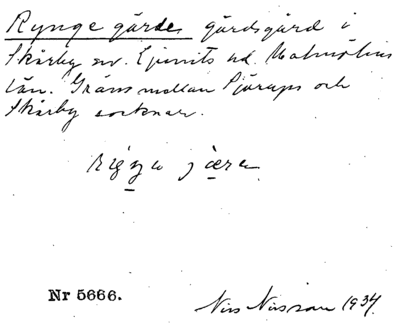 Rynge gärde, gärdsgård i
Skårby sn. Ljunits hd. Malmöhus
län. Gräns mellan Sjörups och
Skårby socknar.
Nr 5666.
Nils Nilsson 1934.